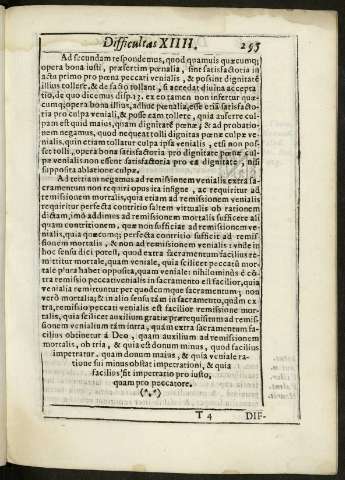 Difficultas XIIII. 295
Ad secundam respondemus, quod quamuis quæcumq;
opera bona iusti, præsertim pœnalia, sint satisfactoria in
actu primo pro pœna peccati venialis, & possint dignitate
illius tollere, & de facto tollant, si accedat diuina accepta
tio, de quo dicemus disp.15. ex eo tamen non infertur quæ
cumq; opera bona illius, adhuc pœnalia, esse etiā satisfacto
ria pro culpa veniali, & posse eam tollere, quia auferre cul
pam est quid maius, quam dignitatē pœnæ; & ad probatio
nem negamus, quod nequeat tolli dignitas pœnæ culpæ ve
nialis, quin etiam tollatur culpa ipsa venialis, etsi non pos
set tolli, opera bona satisfactoria pro dignitate pœnæ culpæ
venialis non essent satisfactoria pro ea dignitate, nisi
supposita ablatione culpæ.
Ad tertiam negamus ad remissionem venialis extra sa
cramentum non requiri opus ita insigne, ac requiritur ad
remissionem mortalis, quia etiam ad remissionem venialis
requiritur perfecta contritio saltem virtualis ob rationem
dictam, imò addimus ad remissionem mortalis sufficere ali
quam contritionem, quæ non sufficiat ad remissionem ve-
nialis, quia quæcumq; perfecta contritio sufficit ad remis-
sionem mortalis, & non ad remissionem venialis: vnde in
hoc sensu dici potest, quod extra sacramentum facilius re-
mittitur mortale, quam veniale, quia scilicet peccatū mor-
tale plura habet opposita, quam veniale: nihilominùs è cō-
tra remissio peccati venialis in sacramento est facilior, quia
venialia remittuntur per quodcumque sacramentum; non
verò mortalia; & in alio sensu tàm in sacramento, quàm ex
tra, remissio peccati venialis est facilior remissione mor-
talis, quia scilicet auxilium gratiæ prærequisitum ad remis-
sionem venialium tàm intra, quàm extra sacramentum fa-
cilius obtinetur à Deo, quam auxilium ad remissionem
mortalis, ob tria, & quia est donum minus, quod facilius
impetratur, quam donum maius, & quia veniale ra-
tione sui minus obstat impetrationi, & quia
facilius fit impetratio pro iusto,
quam pro peccatore.
(*.*)
T 4 DIF-